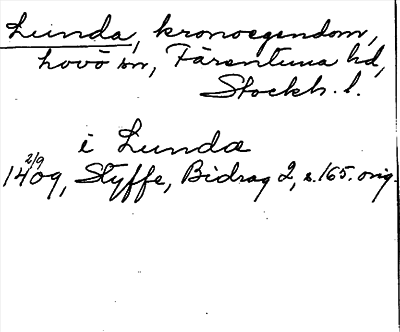 Lunda, kronoegendom,
Lovö sn, Färentuna hd,
Stockh. l.
i Lunda
14 2/9 09, Styffe, Bidrag 2, s. 165. orig.